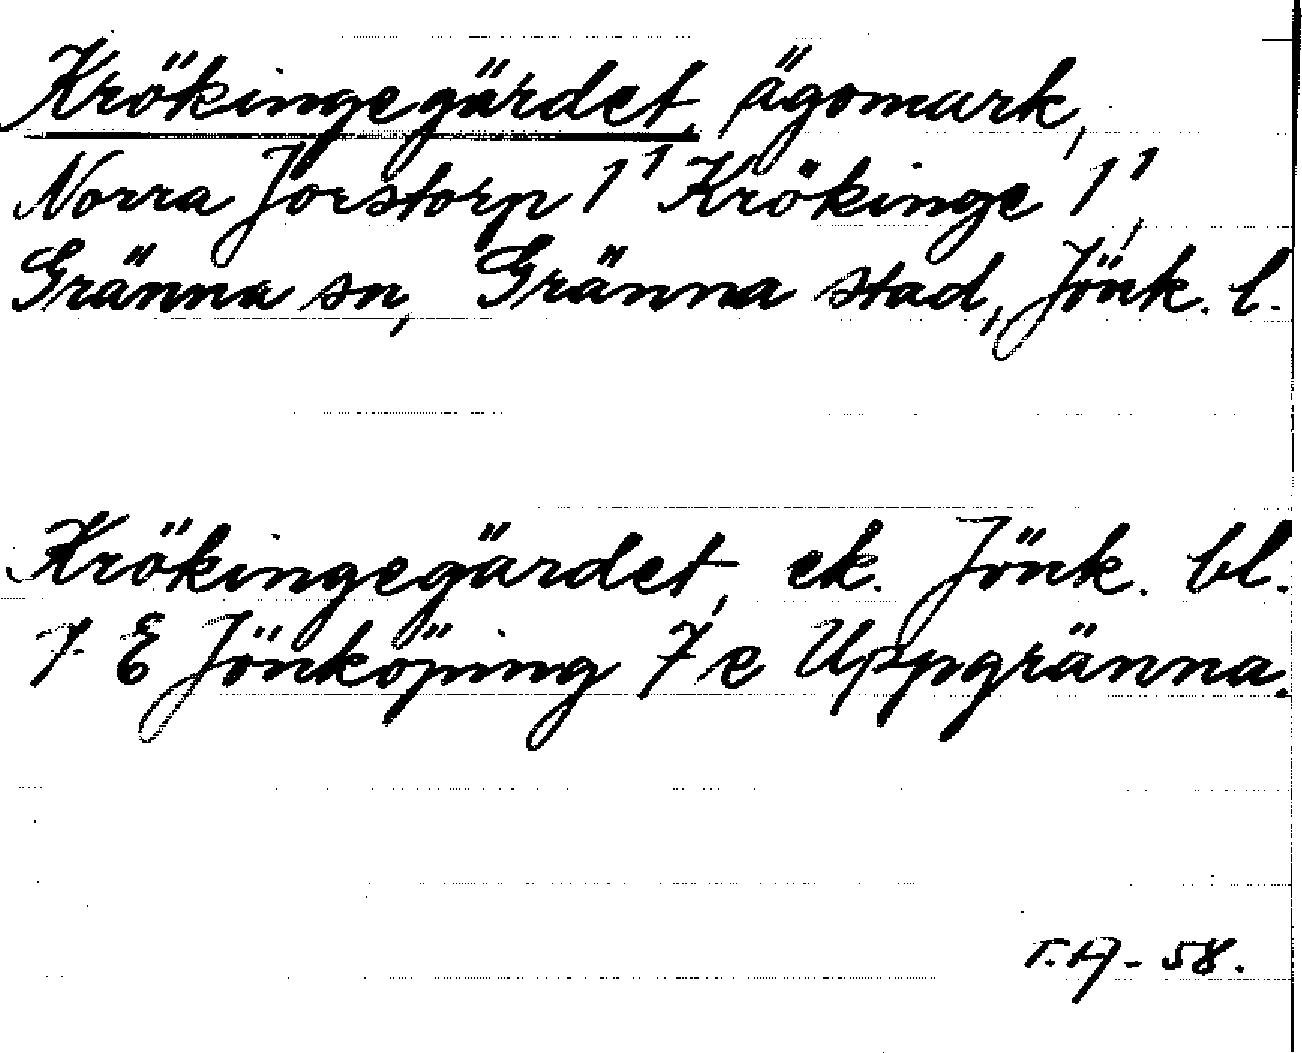 Krökingegärdet, ägomark,
Norra Jorstorp 1¹ Krökinge 1¹,
Gränna sn, Gränna stad, Jönk. l.
Krökingegärdet, ek. Jönk. bl.
7 E Jönköping 7 e Uppgränna.
T.A - 58.